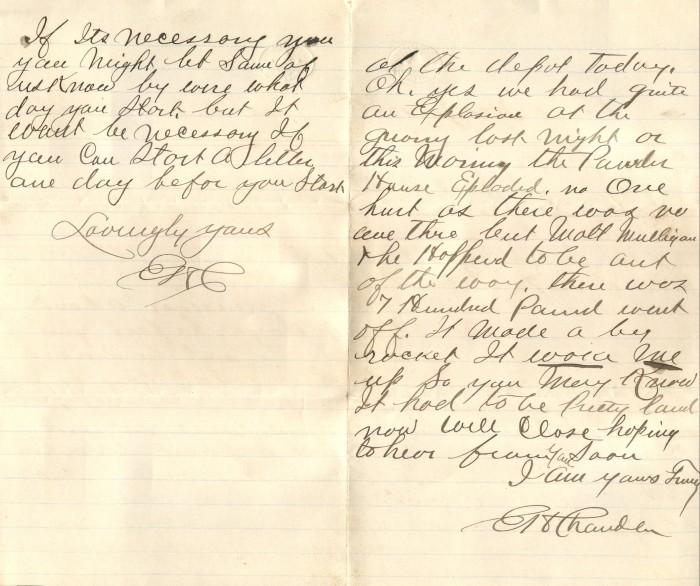 If Its necessary you
you Might let Some of
us know by wire what
day you Start. but It
wont be necessary If
you Can Start A letter
one day befor you Start
Lovingly yours
at the depot today.
Oh, yes we had quite
an Explosion at the
quarry last night or
this Morning the Powder
House Exploded. no One
hurt as there was no
one thre but Matt Mulligan
& he Happend to be out
of the way. there was
7 Hundred Pound went
off. It made a big
racket It woke Me
up So you May Know
It had to be Pretty loud
now will Close hoping
to hear from you Soon
I am yours Truly